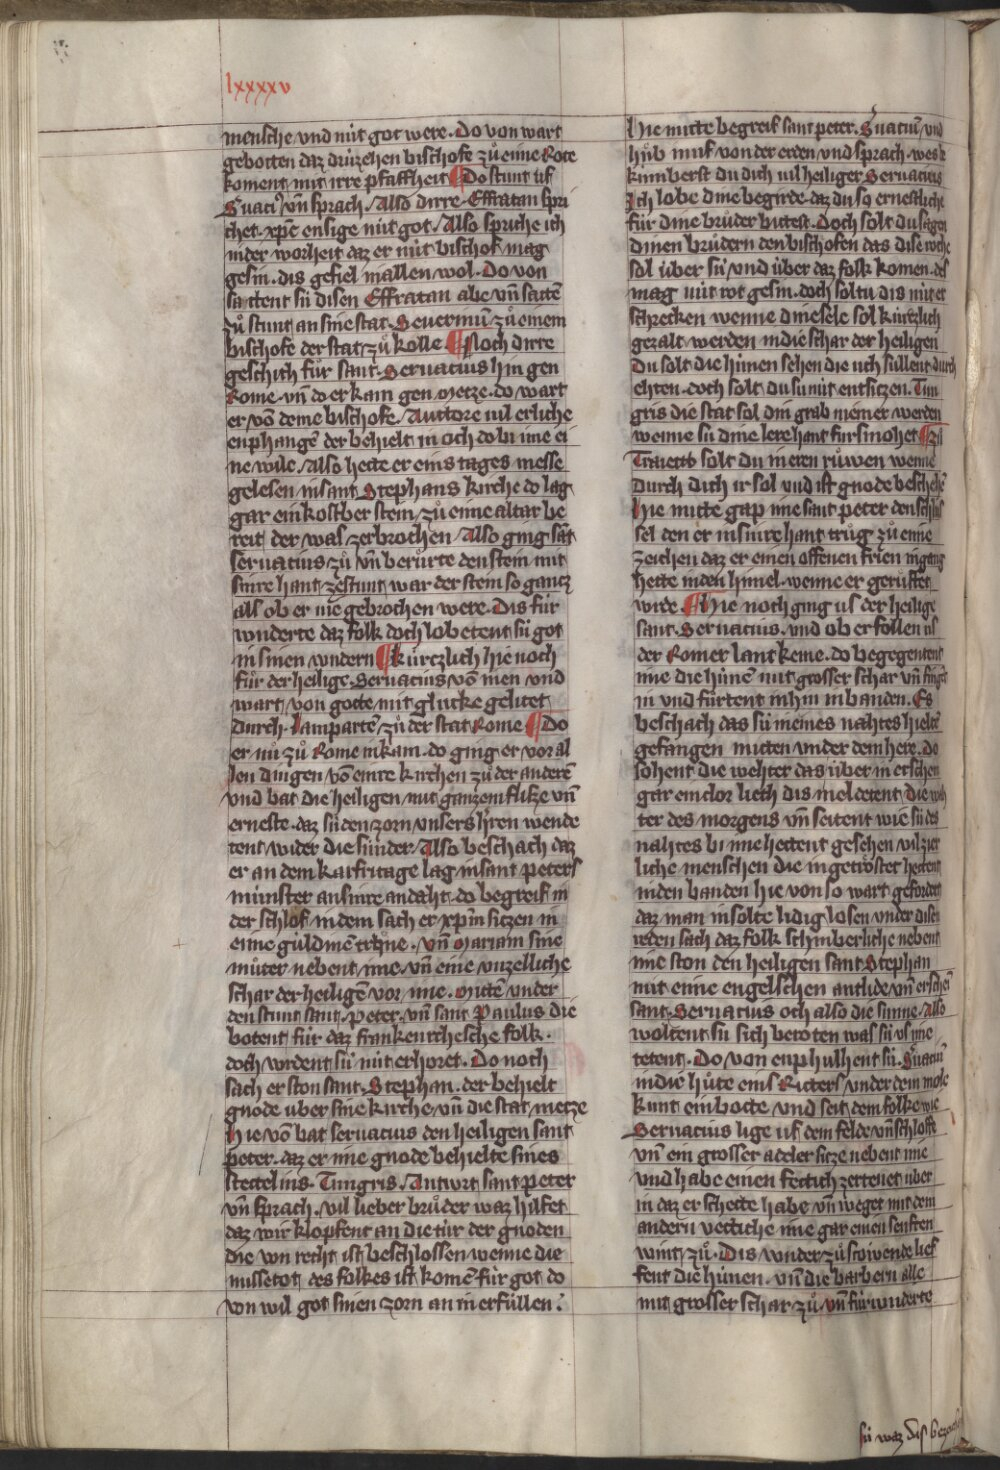 lxxxxv
mensche vnd nüt got were. Do von wart
gebotten daz drüzehen bischofe zů eime Rote
koment mit irre pfaffheit Do stunt uf
Suaci9 vn̄ sprach. Also dirre Effratan spri
chet xp̄c ensige nüt got. Also spriche ich
in der worheit daz er nüt bischof mag
gesin. dis gefiel in allen wol. Do von
sattent sü disen Effratan abe vn̄ satte
zů stunt an sine stat. Seuerinū zů einem
bischofe der stat zů kolle Noch dirre
geschiht für sant Seruacius hin gen
Rome. vn̄ do er kam gen Metze. do wart
er vō deme bischofe. Auttore vil erliche
enphangē der behielt in och do bi ime ei
ne wile. Also hette er eins tages messe
gelesen in sant Stephans kirche do lag
gar ein kostber stein. zů eime altar be
reit der was zerbrochen. Also ging sāt
seruacius zů vn̄ berůrte den stein mit
sinre hant. zestunt war der stein so gantz
als ob er nie gebrochen were. Dis für
wnderte daz folk doch lobetent sü got
in sinen wndern kürczlich hie noch
für der heilige Seruacius vō inen vnd
wart von gotte mit glücke geleitet
durch lamparte zů der stat Rome Do
er nů zů Rome in kam. do ging er vor al
len dingen vō einre kirchen zů der anderē
vnd bat die heiligen mit ganzem flisze vn̄
erneste. daz sü den zorn vnsers h̄ren wende
tent wider die sünder. Also beschach daz
er an dem karfritage lag in sant peters
münster an sinre andaht. do begreif in
der schlof. in dem sach er xp̄m siczen in
eime güldinē trone. vn̄ Mariam sine
můter nebent ime. vn̄ eine vnzelliche
schar der heiligē vor ime. Mittē vnder
den stunt sant peter. vn̄ sant Paulus die
botent für daz frankenrichesche folk.
doch wrdent sü nüt erhoret. Do noch
sach er ston sant Stephan. der behielt
gnode über sine kirche. vn̄ die stat metze
hie vō bat seruacius den heiligen sant
peter. daz er ime gnode behielte sines
stettelins. Tungris. Antwrt sant peter
vn̄ sprach. vil lieber brůder waz hilfet
daz wir klopfent an die tür der gnoden
die von recht ist beschlossen wenne die
missetot des folkes ist komē für got do
von wil got sinen zorn an in erfüllen:
hie mitte begreif sant peter. Suatiū vnd
hůb in uf von der erden vnd sprach. wes be
kümberst du dich vil heiliger Seruacius
Ich lobe dine begirde. daz du so ernestliche
für dine brůder bittest. Doch solt du sagen
dinen brůdern den bischofen das dise roche
sol über sü vnd über daz folk komen. des
mag nüt rot gesin. doch soltu dis nüt er
schrecken wenne din sele sol kürtzlich
gezalt werden in die schar der heiligen
Du solt die hünen sehen die uch süllent durch
ehten. doch solt du sü nüt entsitzen. Tun
gris die stat sol din grab niemer werden
wenne sü dine lere hant fursmohet zů
Traiectū solt du in eren růwen wenne
durch dich ir sol vnd ist gnode beschehē
hie mitte gap ime sant peter den schlüs
sel den er in sinre hant trůg zů eime
zeichen daz er einen offenen frien ingang
hette in den himel. wenne er gerůffet
wrde. hie noch ging us der heilige
sant Seruacius. vnd ob er follen us
der Romer lant keme. do begegentent
ime die hünē mit grosser schar vn̄ fingēt
in vnd fürtent in hin in banden. Es
beschach das sü in eines nahtes hieltē
gefangen mitten vnder dem here. Do
sohent die wehter das über in erschen
gar ein clor lieth dis meldetent die weh
ter des morgens vn̄ seitent wie sü des
nahtes bi ime hettent gesehen vil zier
liche menschen die in getröstet hettent
in den banden hie von so wart geforden
daz man in solte lidig losen vnder disen
reden sach daz folk schinberliche nebent
ime ston den heiligen sant Stephan
mit eime engelschen antlide vn̄ erschen
sant Seruacius och also die sunne. Also
woltent sü sich beroten was sü us ime
tetent. Do von enphulhent sü. Suaciū
in die hůte eins Ritters vnder dem mole
kunt ein botte vnd seit dem folke wie
Seruacius lige uf dem felde vn̄ schloffe
vn̄ ein grosser adeler sitze nebent ime
vnd habe einen fettich zertenet über
in daz er schette habe vn̄ weget mit dem
andern vettiche ime gar einen senften
wint zů. Dis wnder zů schowende lief
fent die hünen. vn̄ die barbern alle
mit grosser schar zů vn̄ fürwnderte
sü waz dis bezeich